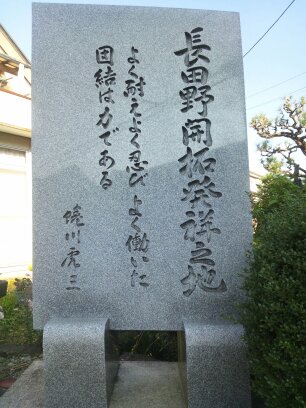 長田野開拓発祥之地
よく耐えよく忍び よく働いた
団結は力である
蜷川虎三